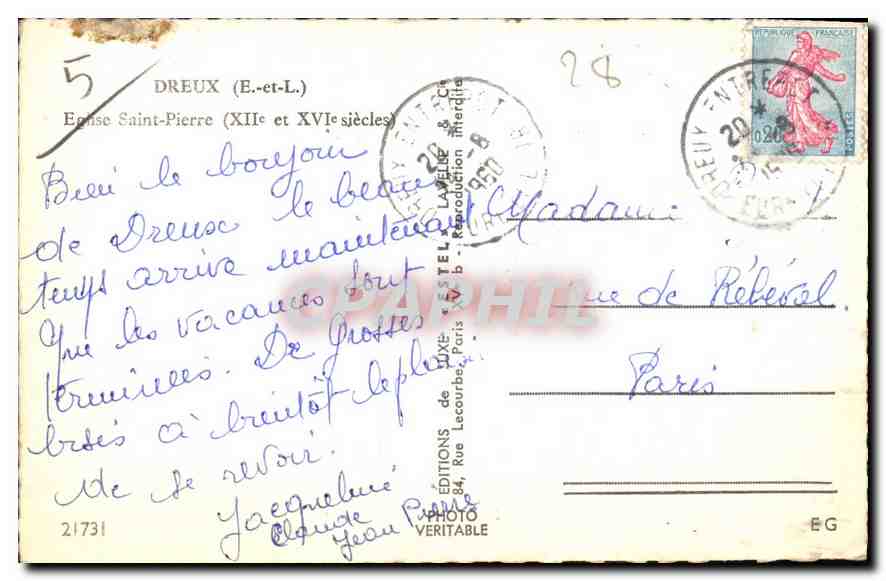 5
28
DREUX (E.-et-L.)
Eglise Saint-Pierre (XIIe et XVIe siècles)
Bien le bonjour
de Dreux le beau
temps arrive maintenant
que les vacances sont
terminées. De Grosses
bises à bientôt le plaisir
de se revoir.
Jacqueline
Claude
Jean Pierre
21731
PHOTO
VERITABLE
ÉDITIONS de LUXE "ESTEL" LAVELLE & Cie
84, Rue Lecourbe, Paris XV - b - Reproduction interdite
REPUBLIQUE FRANÇAISE
0,20
POSTES
DREUX ENTREPOT
20
-8
1960
DREUX ENTREPOT
20
-8
EURE
Madame
rue de Rébéval
Paris
EG
CPAPHIL